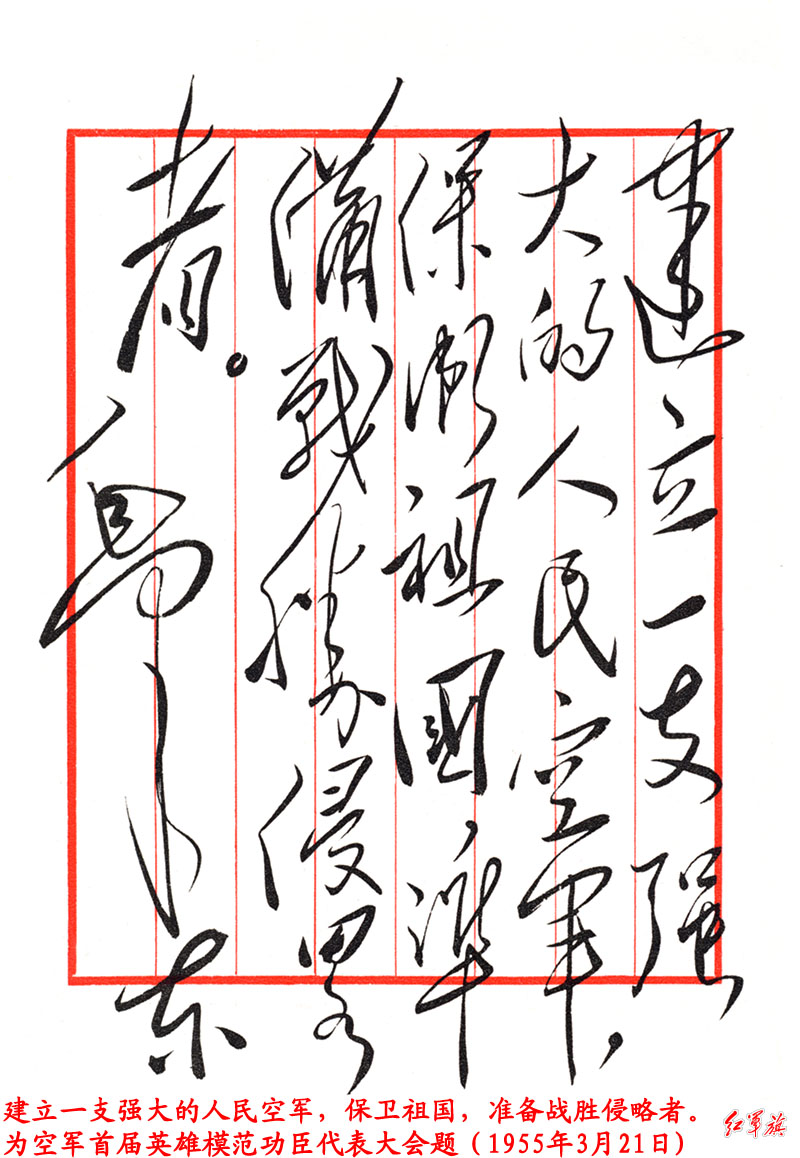 建立一支强
大的人民空軍，
保衛祖國，準
備戰勝侵略
者。
毛泽东
建立一支强大的人民空军，保卫祖国，准备战胜侵略者。
为空军首届英雄模范功臣代表大会题（1955年3月21日）
红军旗